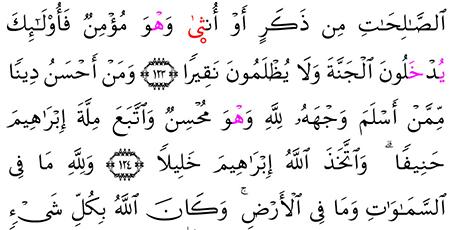 اَلصَّٰلِحَٰتِ مِن ذَكَرٍ أَوْ أُنثىٰ وَهْوَ مُؤْمِنٌ فَأُوْلَٰٓئِكَ
يُدْخَلُونَ اَلْجَنَّةَ وَلَا يُظْلَمُونَ نَقِيرًا ١٢٣ وَمَنْ أَحْسَنُ دِينًا
مِّمَّنْ أَسْلَمَ وَجْهَهُۥ لِلَّهِ وَهْوَ مُحْسِنٌ وَاتَّبَعَ مِلَّةَ إِبْرَٰهِيمَ
حَنِيفًا ۗ وَاتَّخَذَ اَللَّهُ إِبْرَٰهِيمَ خَلِيلًا ١٢٤ وَلِلَّهِ مَا فِي
اَلسَّمَٰوَٰتِ وَمَا فِي اِلْأَرْضِ ۚ وَكَانَ اَللَّهُ بِكُلِّ شَيْءٍ